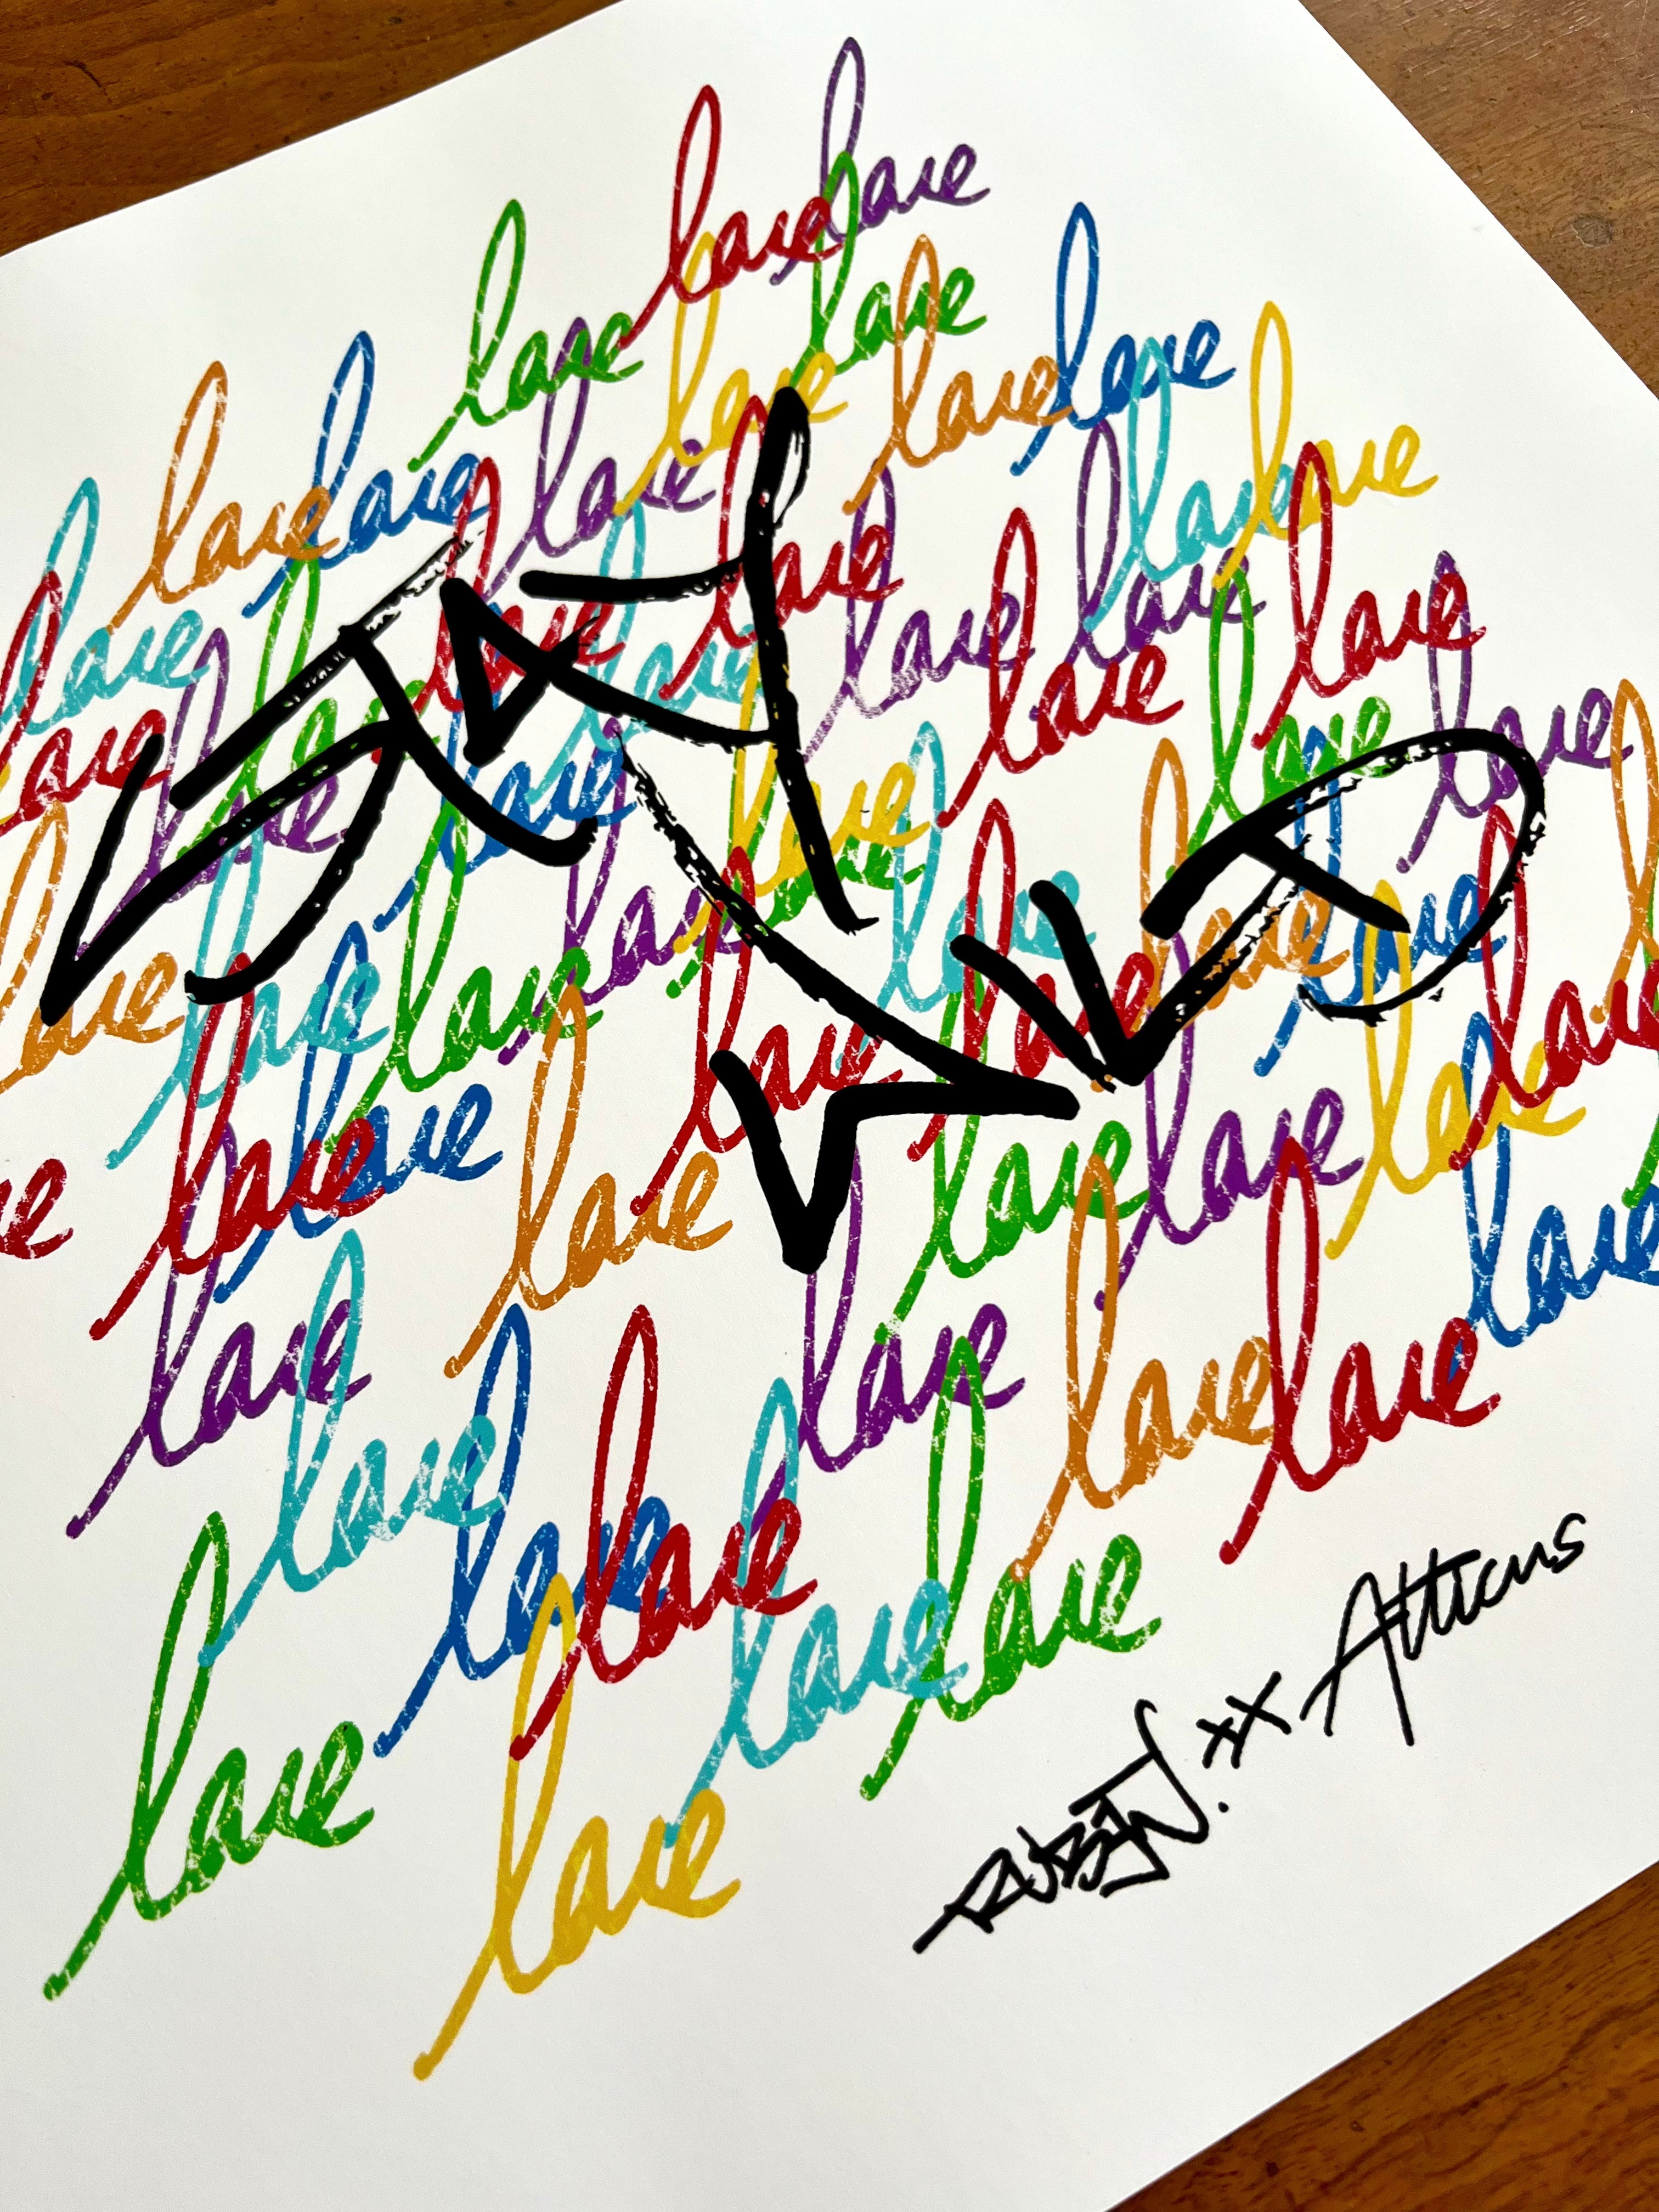 love love
love love love
love love love love love
love love love love love love
love love love love love love
love love love love love love
love love love love love love
love love love love love love
love love love love love
love love love love
love love love love
love love
RUBIN. xx Atticus